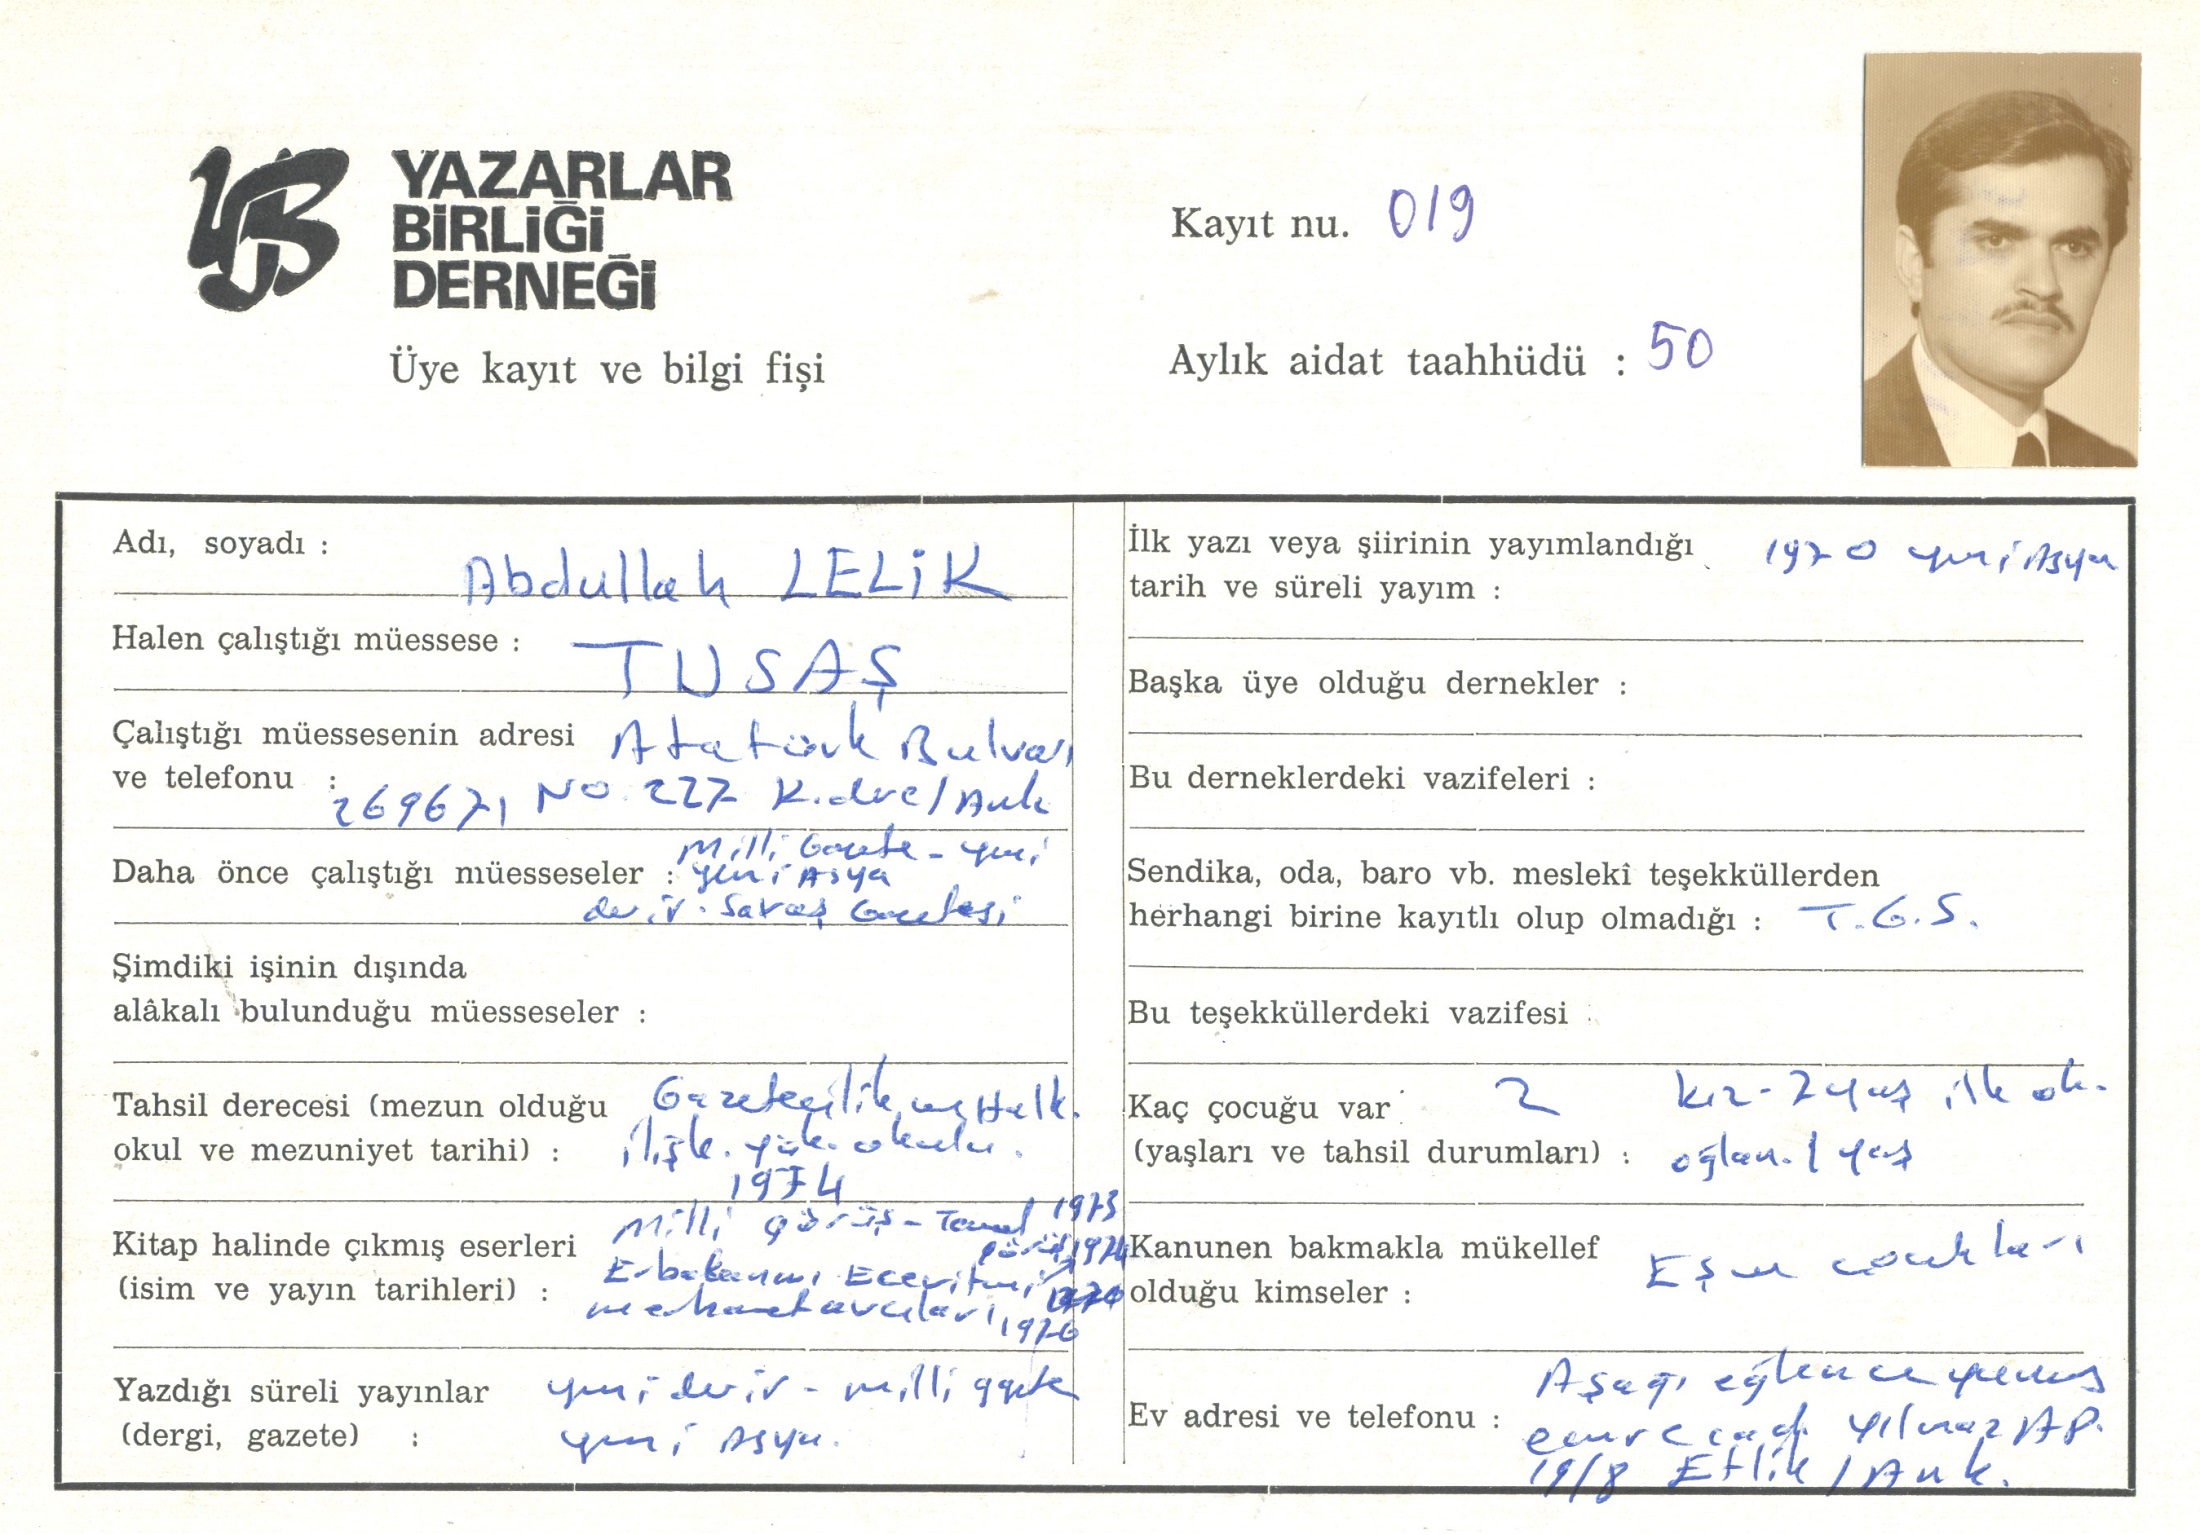 YAZARLAR
BİRLİĞİ
DERNEĞİ
Üye kayıt ve bilgi fişi
Kayıt nu. 019
Aylık aidat taahhüdü : 50
Adı, soyadı : Abdullah LELİK
Halen çalıştığı müessese : TUSAŞ
Çalıştığı müessesenin adresi Atatürk Bulvarı
ve telefonu : 269671, NO. 227 K.dere/Ank
Daha önce çalıştığı müesseseler : Milli Gazete - yeni
yeni Asya
devir. Savaş Gazetesi
Şimdiki işinin dışında
alâkalı bulunduğu müesseseler :
Tahsil derecesi (mezun olduğu Gazetecilik ve Halk.
okul ve mezuniyet tarihi) : ilişk. yük. okulu.
1974
Kitap halinde çıkmış eserleri Milli görüş - Temel 1973
görüş 1974
(isim ve yayın tarihleri) : Erbakanmı Ecevitmi
merhamet avcıları, 1976
Yazdığı süreli yayınlar yeni devir - milli gazete
(dergi, gazete) : yeni Asya.
İlk yazı veya şiirinin yayımlandığı 1970 yeni Asya
tarih ve süreli yayım :
Başka üye olduğu dernekler :
Bu derneklerdeki vazifeleri :
Sendika, oda, baro vb. meslekî teşekküllerden
herhangi birine kayıtlı olup olmadığı : T.G.S.
Bu teşekküllerdeki vazifesi :
Kaç çocuğu var : 2 kız - 7 yaş ilk ok.
(yaşları ve tahsil durumları) : oğlan. 1 yaş
Kanunen bakmakla mükellef
olduğu kimseler : Eşi ve çocukları
Ev adresi ve telefonu : Aşağı eğlence yunus
emre cad. yılmaz AP.
19/8 Etlik / Ank.